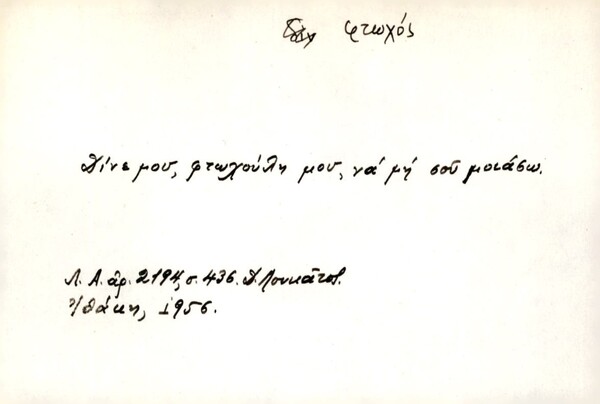 φτωχός
Δίνε μου, φτωχούλη μου, νά μή σοῦ μοιάσω.
Λ. Α. ἀρ. 2194, σ. 436. Δ. Λουκᾶτος.
Ἰθάκη, 1956.